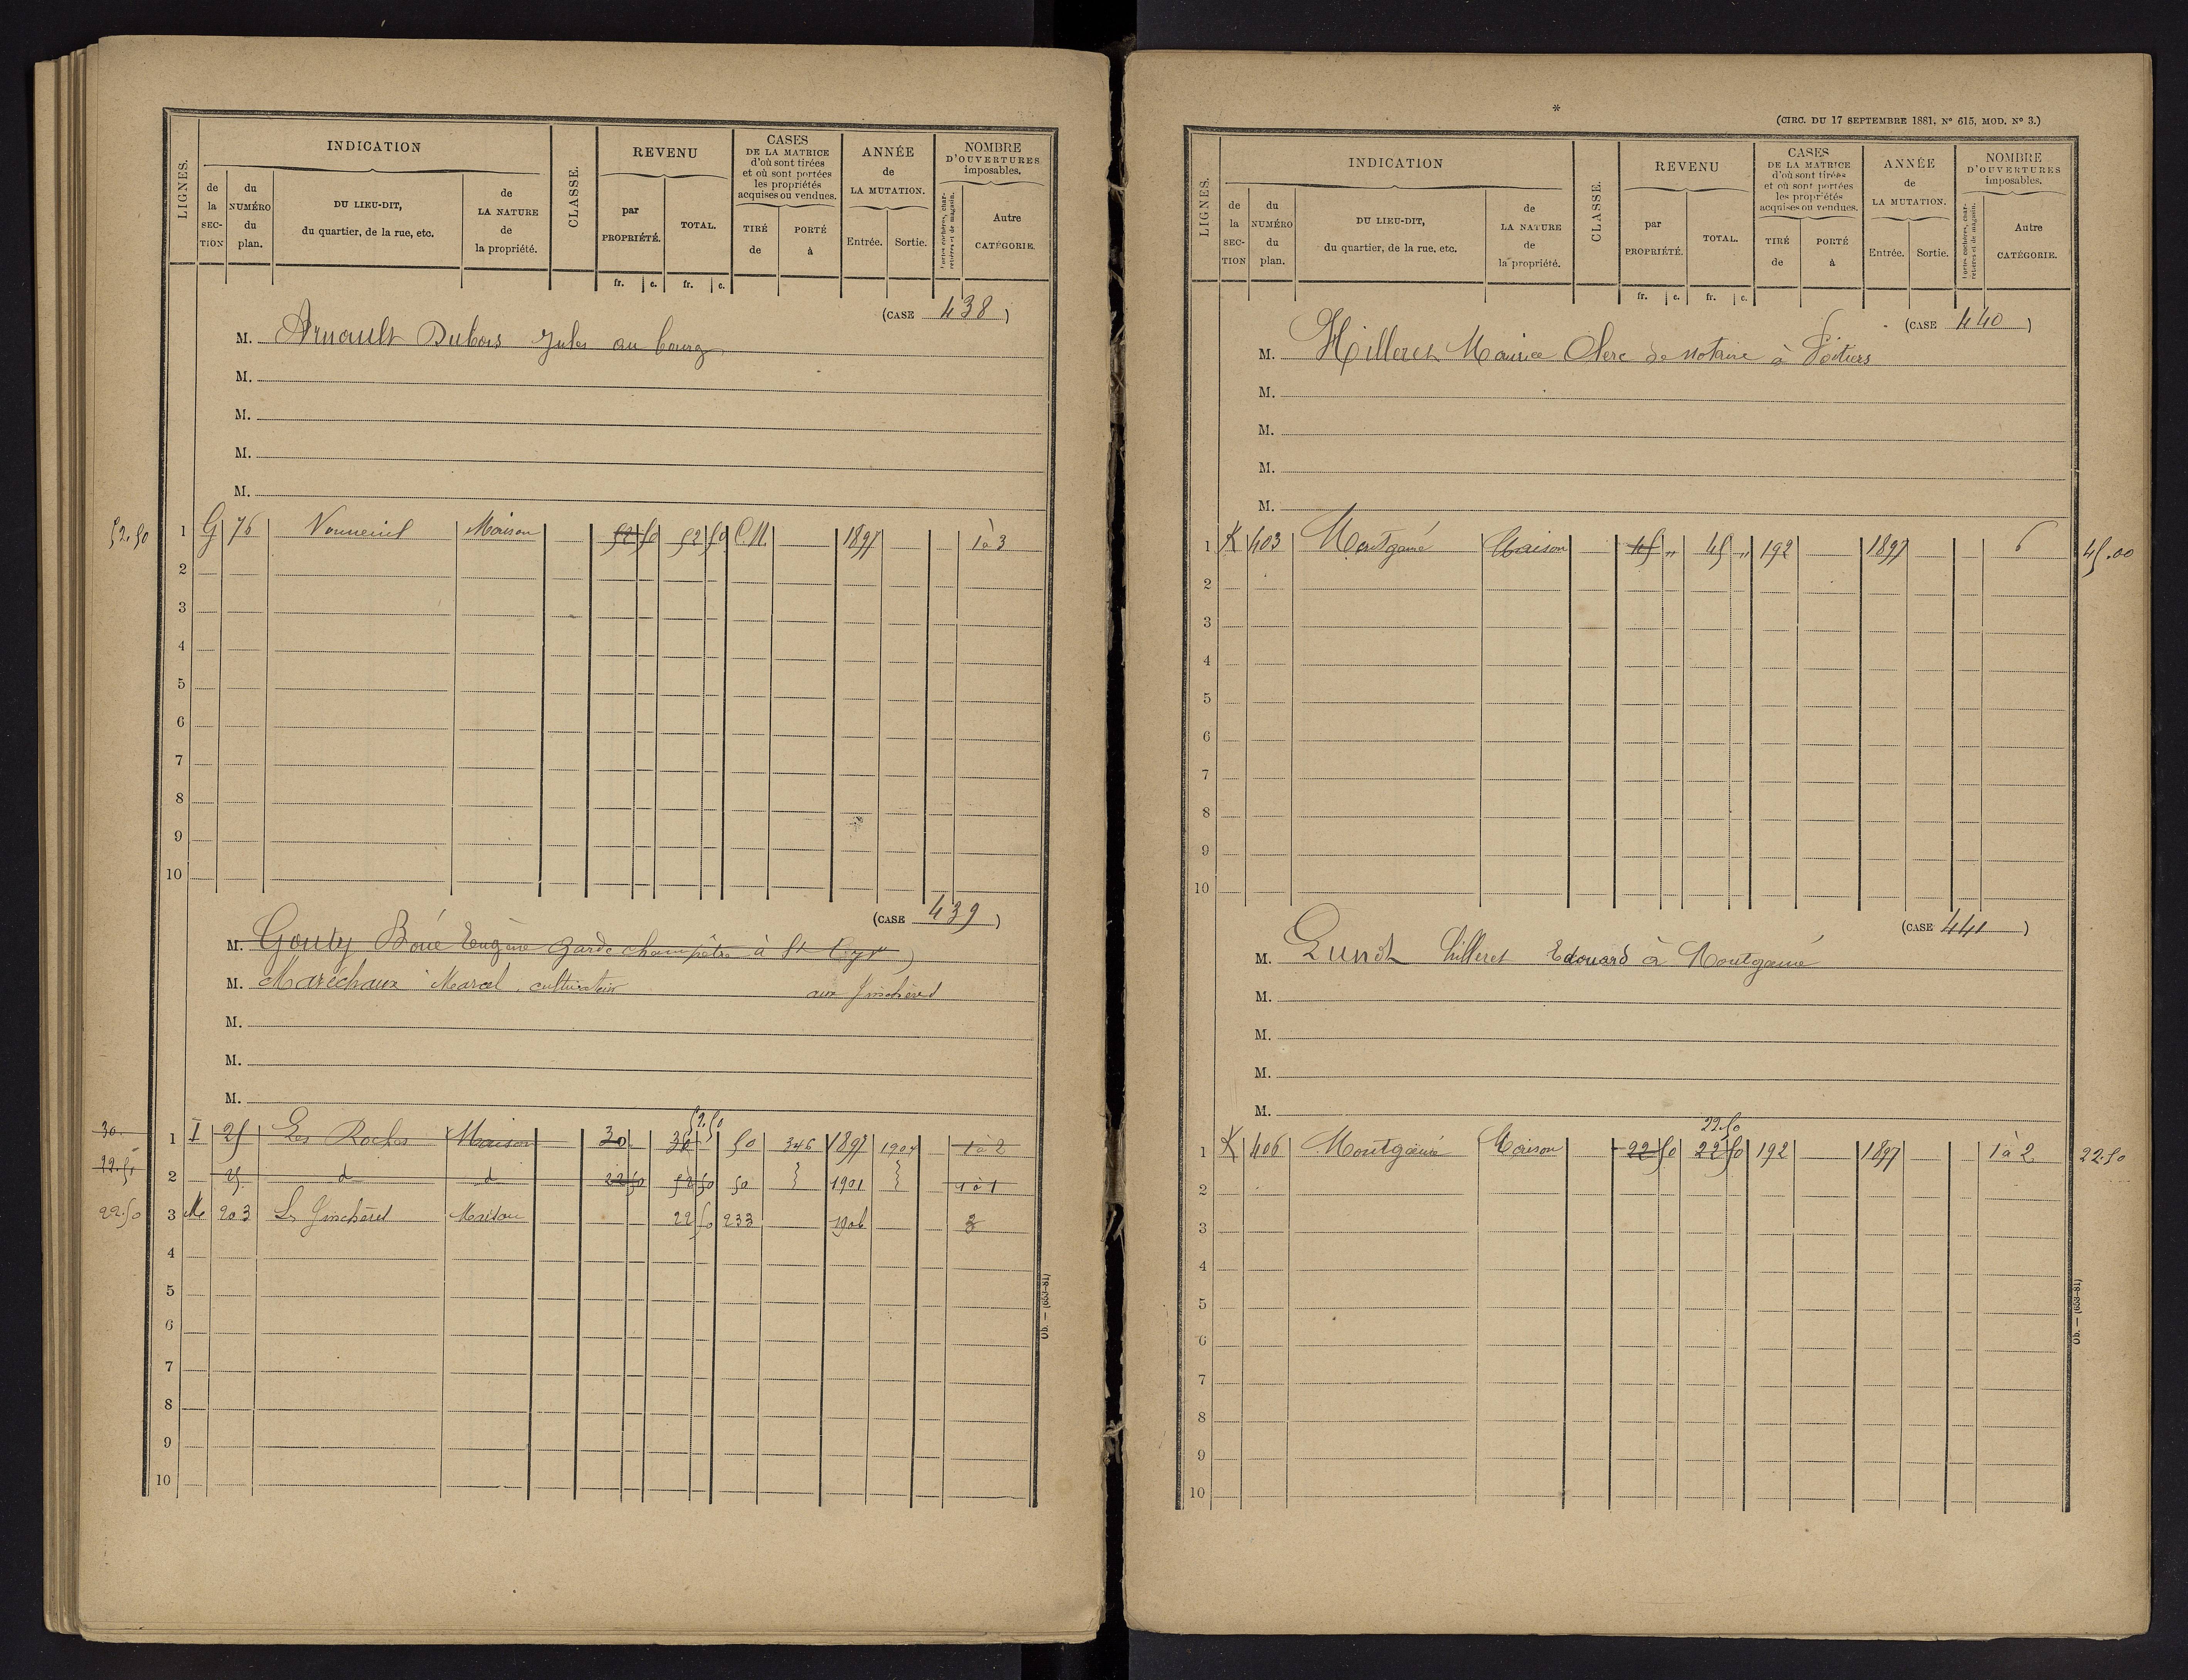 LIGNES. INDICATION CLASSE. REVENU CASES DE LA MATRICE d'où sont tirées et où sont portées les propriétés acquises ou vendues. ANNÉE de LA MUTATION. NOMBRE D'OUVERTURES imposables.
de la SECTION du NUMÉRO du plan. DU LIEU-DIT, du quartier, de la rue, etc. de LA NATURE de la propriété. par PROPRIÉTÉ. TOTAL. TIRÉ de PORTÉ à Entrée. Sortie. Portes cochères, charretières et de magasin. Autre CATÉGORIE.
fr. c. fr. c.
(CASE 438)
M. Arnault Dubois Jules au bourg
M.
M.
M.
M.
52.50 1 G 76 Vonneuil Maison 52 50 52 50 C.N. 1897 1 à 3
2
3
4
5
6
7
8
9
10
(CASE 439)
M. Gouty Boué Eugène garde champêtre à St Cyr
M. Maréchaux Marcel cultivateur aux
M.
M.
M.
52.50
30. 1 I 25 Les Roches Maison 30 30 50 346 1897 1907 1 à 2
22.50 2 25 d d 22 50 52 50 50 1901 1 à 1
22.50 3 M 203 Maison 22 50 233 1906 2
4
5
6
7
8
9
10
Ob. — (653-81)
*
(CIRC. DU 17 SEPTEMBRE 1881, N° 615, MOD. N° 3.)
LIGNES. INDICATION CLASSE. REVENU CASES DE LA MATRICE d'où sont tirées et où sont portées les propriétés acquises ou vendues. ANNÉE de LA MUTATION. NOMBRE D'OUVERTURES imposables.
de la SECTION du NUMÉRO du plan. DU LIEU-DIT, du quartier, de la rue, etc. de LA NATURE de la propriété. par PROPRIÉTÉ. TOTAL. TIRÉ de PORTÉ à Entrée. Sortie. Portes cochères, charretières et de magasin. Autre CATÉGORIE.
fr. c. fr. c.
(CASE 440)
M. Hilleret Maurice Clerc de Notaire à Poitiers
M.
M.
M.
M.
1 K 403 Montgamé Maison 45 " 45 " 192 1897 6 45.00
2
3
4
5
6
7
8
9
10
(CASE 441)
M. Hilleret Edouard à Montgamé
M.
M.
M.
M.
22.50
1 K 406 Montgamé Maison 22 50 22 50 192 1897 1 à 2 22.50
2
3
4
5
6
7
8
9
10
Ob. — (653-81)